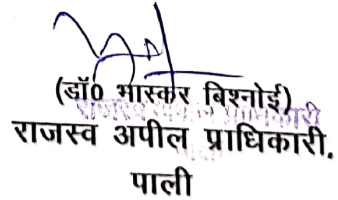 (डॉ0 भास्कर बिश्नोई)
राजस्व अपील प्राधिकारी,
पाली